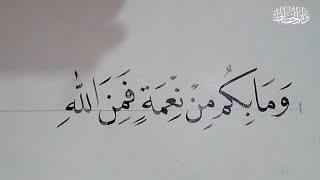 وَمَا بِكُم مِنْ نِعْمَةٍ فَمِنَ اللَّهِ